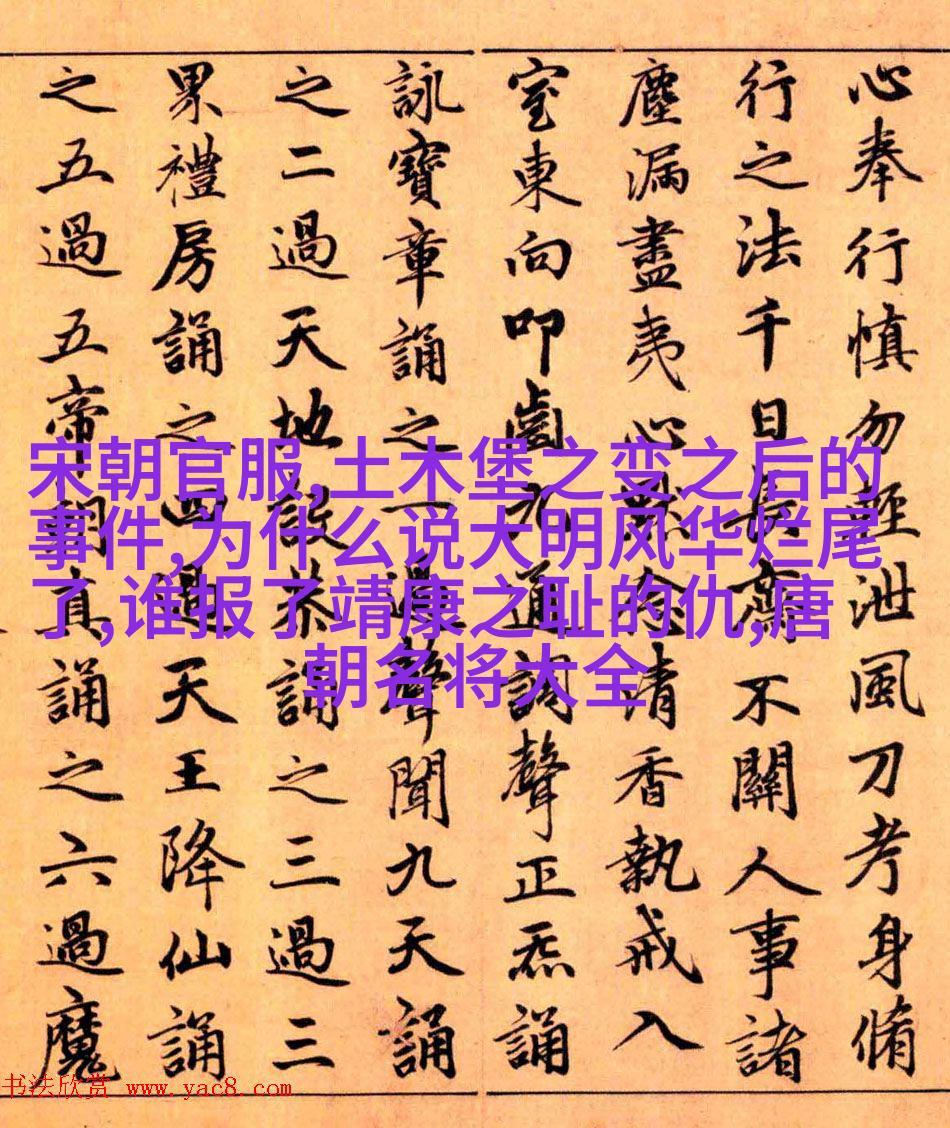 心奉行慎勿輕泄風刀考身脩
行之法千日長齋不關人事諸
塵漏盡夷心默念清香執戒入
室東向叩齒九通調聲正炁誦
詠寶章誦之一過聲聞九天誦
之二過天地設恭誦之三過三
累禮房誦之四過天王降仙誦
之五過五帝朝真誦之六過魔
宋朝官服,土木堡之变之后的
事件,为什么说大明风华烂尾
了,谁报了靖康之耻的仇,唐
朝名将大全
书法欣赏 www.yac8.com